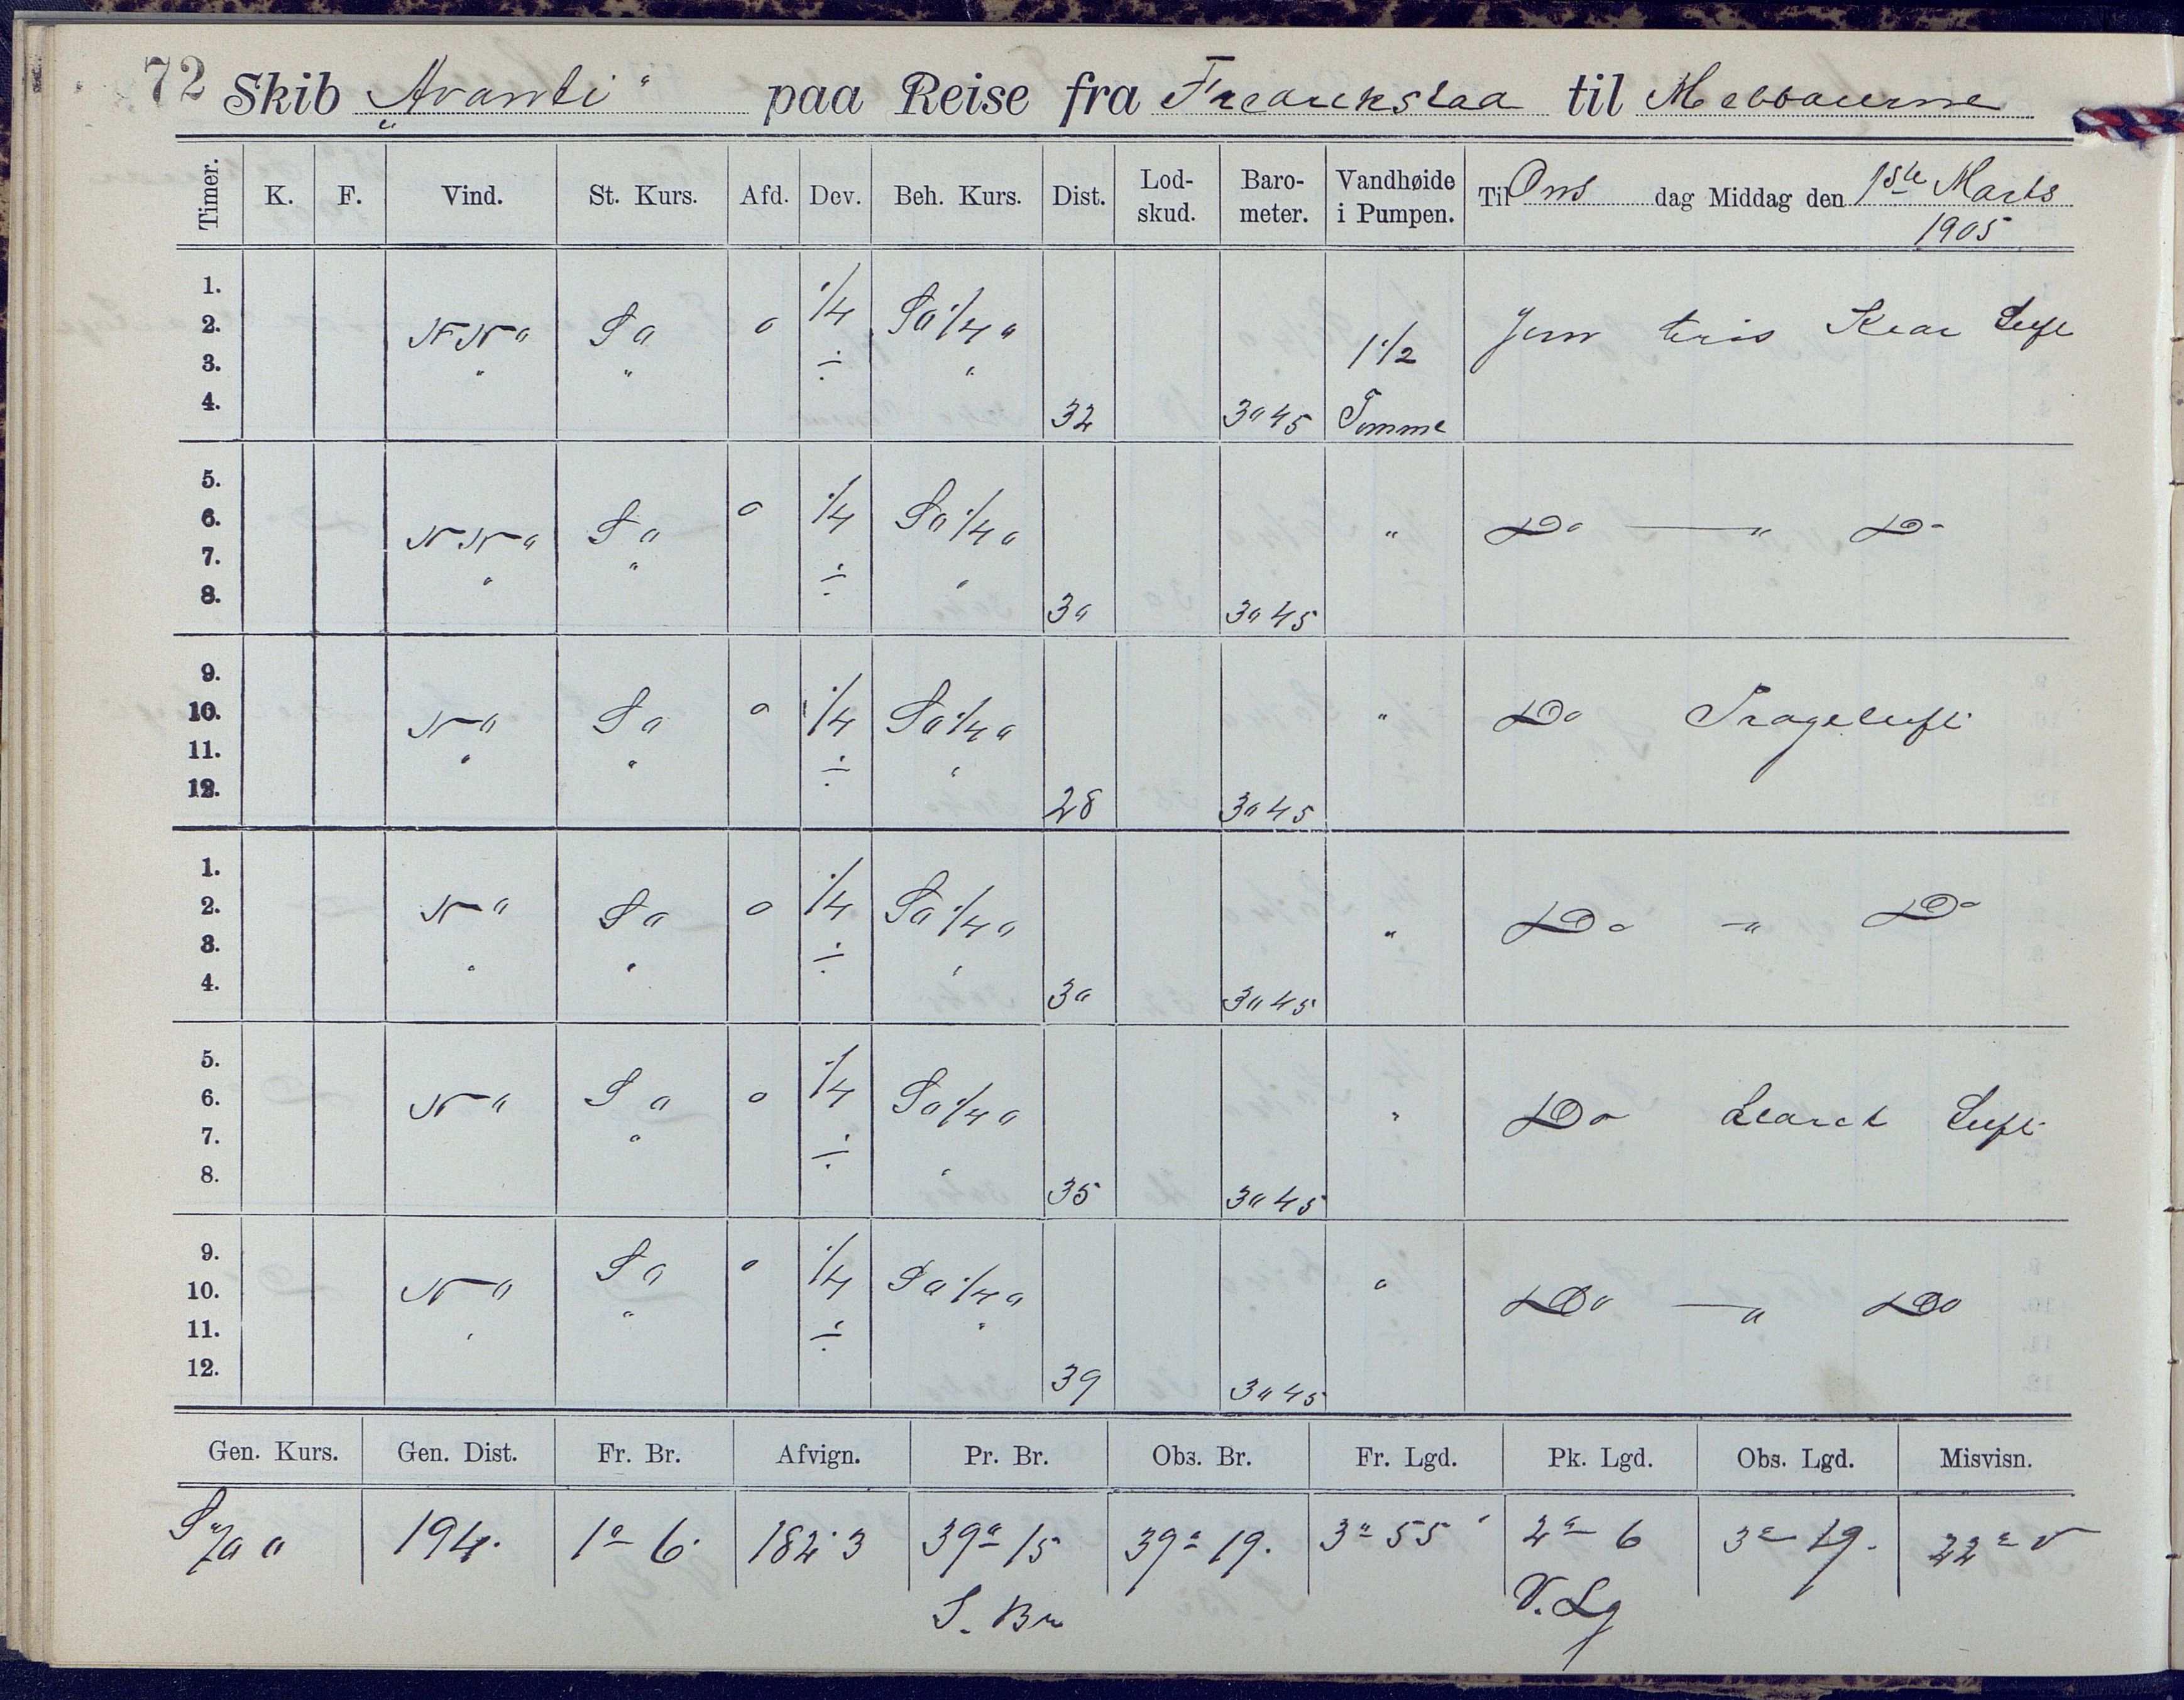 72 Skib „Avanti“ paa Reise fra Fredrikstad til Melbourne
Timer. K. F. Vind. St. Kurs. Afd. Dev. Beh. Kurs. Dist. Lod-skud. Baro-meter. Vandhøide i Pumpen. Til Ons dag Middag den 1ste Marts
1905
1.
2. NNO SO 0 1/4 SO 1/4 O 1 1/2 Jevn bris Klar Luft
3. " " ÷ "
4. 32 30 45 Tomme
5.
6. NNO SO 0 1/4 SO 1/4 O " Do " Do
7. " " ÷ "
8. 30 30 45
9.
10. NO SO 0 1/4 SO 1/4 O " Do Trageluft
11. " " ÷ "
12. 28 30 45
1.
2. NO SO 0 1/4 SO 1/4 O " Do " Do
3. " " ÷ "
4. 30 30 45
5.
6. NO SO 0 1/4 SO 1/4 O " Do Klaret Luft
7. " ÷ "
8. 35 30 45
9.
10. NO SO 0 1/4 SO 1/4 O " Do " Do
11. " " ÷ "
12. 39 30 45
Gen. Kurs. Gen. Dist. Fr. Br. Afvign. Pr. Br. Obs. Br. Fr. Lgd. Pk. Lgd. Obs. Lgd. Misvisn.
S 70 O 194. 1° 6' 182.3 39° 15 39° 19. 3° 55' 2° 6 3° 19. 22° V
S. Br V. Lg